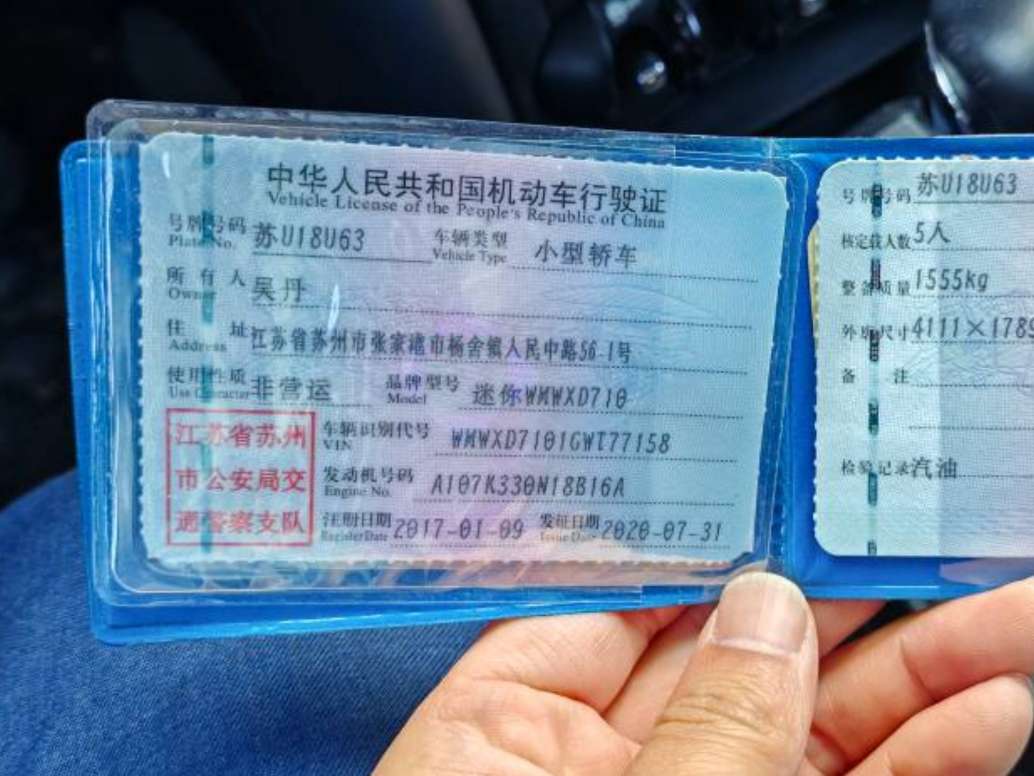 中华人民共和国机动车行驶证
Vehicle License of the People's Republic of China
号牌号码 苏U18U63 车辆类型 小型轿车
Plate No. Vehicle Type
所有人 吴丹
Owner
住址 江苏省苏州市张家港市杨舍镇人民中路56-1号
Address
使用性质 非营运 品牌型号 迷你WMWXD710
Use Character Model
江苏省苏州
市公安局交
通警察支队
车辆识别代号 WMWXD7101GWT77158
VIN
发动机号码 A107K330N18B16A
Engine No.
注册日期 2017-01-09 发证日期 2020-07-31
Register Date Issue Date
号牌号码 苏U18U63
核定载人数 5人
整备质量 1555kg
外廓尺寸 4111×178
备注
检验记录 汽油